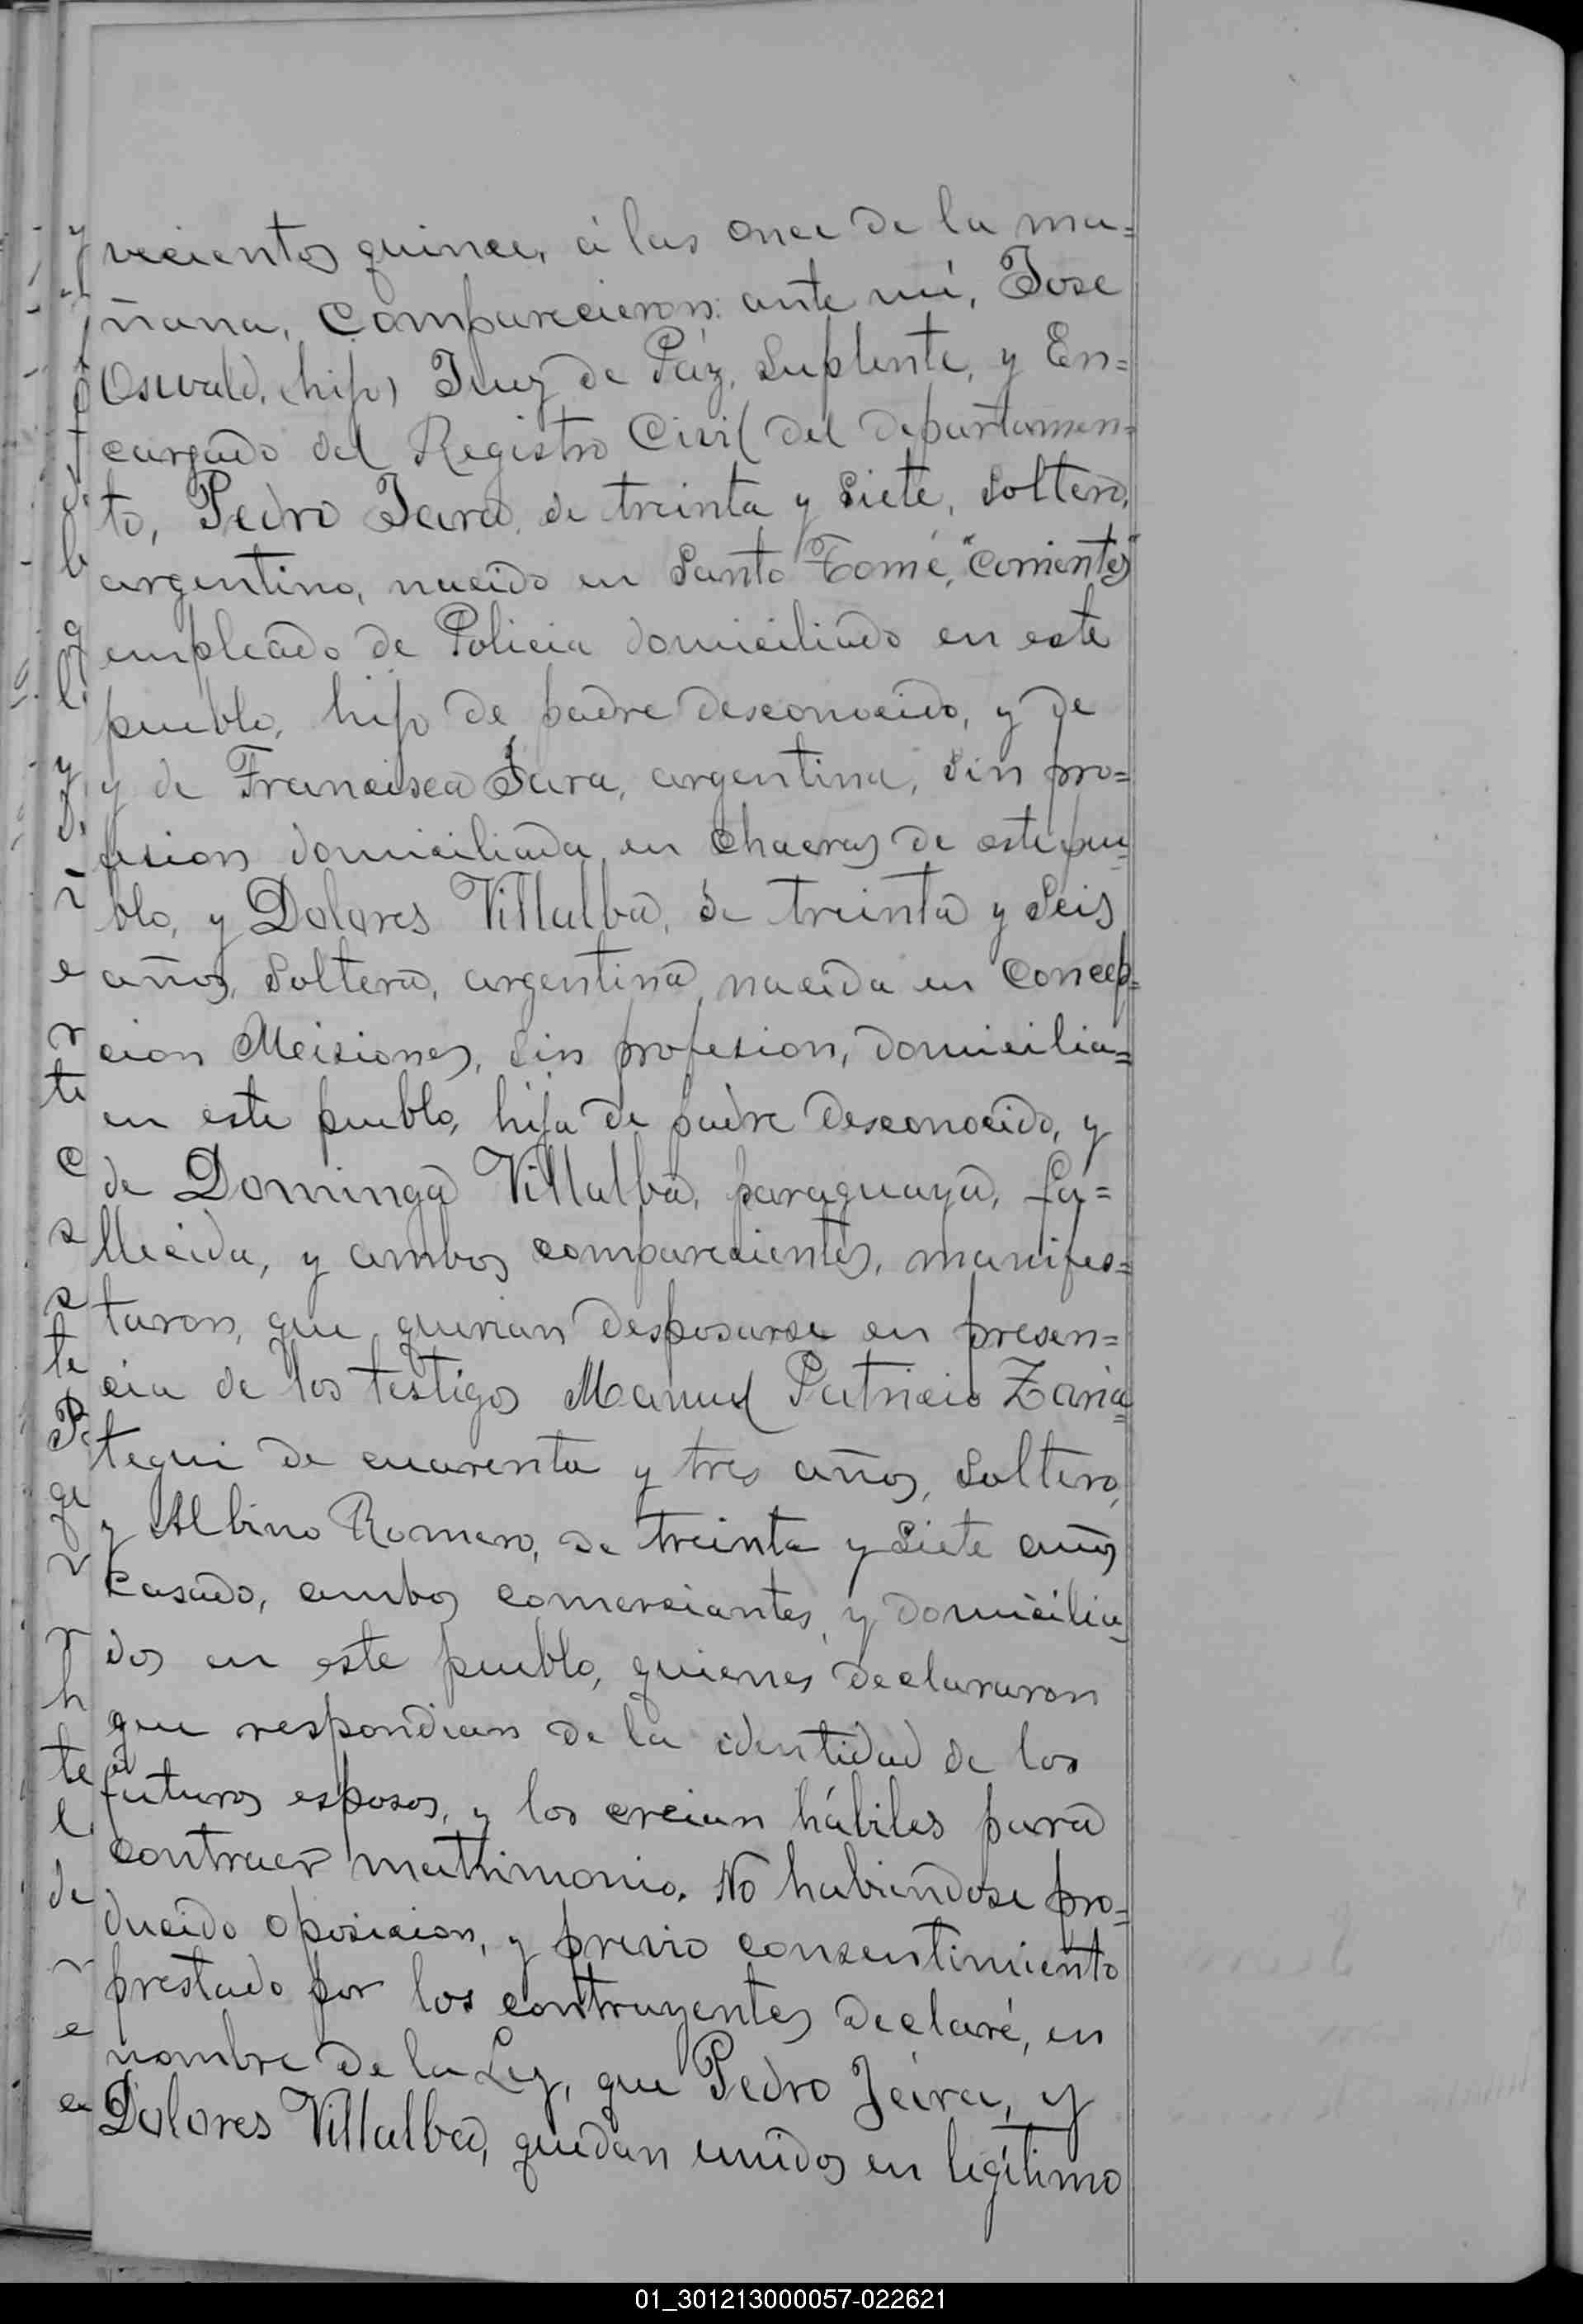 vecientos quince, á las once de la ma=
ñana, Comparecieron: ante mí, Jose
Oswald, (hijo) Juez de Páz, Suplente, y En=
cargado del Registro Civil del departamen=
to, Pedro Jara, de treinta y Siete, Soltero,
argentino, nacido en Santo Tomé, "Corrientes"
empleado de Policia domiciliado en este
pueblo, hijo de padre desconocido, y de
y de Francisca Jara, argentina, Sin pro=
fesion domiciliada en Chacras de este pue
blo, y Dolores Villalba, de treinta y Seis
años, Soltera, argentina, nacida en Concep=
cion Meisiones, Sin profesion, domicilia=
en este pueblo, hija de padre desconocido, y
de Dominga Villalba, paraguaya, fa=
llecida, y ambos comparecientes, manifes=
taron, que querian desposarse en presen=
cia de los testigos Manuel Patricio Zaria=
tegui de cuarenta y tres años, Soltero,
y Albino Romero, de treinta y Siete años
Casado, ambos comerciantes, y domicilia=
dos en este pueblo, quienes declararon
que respondian de la identidad de los
futuros esposos, y los creian hábiles para
contraer matrimonio. No habiendose pro=
ducido oposicion, y previo consentimiento
prestado por los contrayentes declaré, en
nombre de la Ley, que Pedro Jára, y
Dolores Villalba, quedan unidos en legítimo
01_301213000057-022621